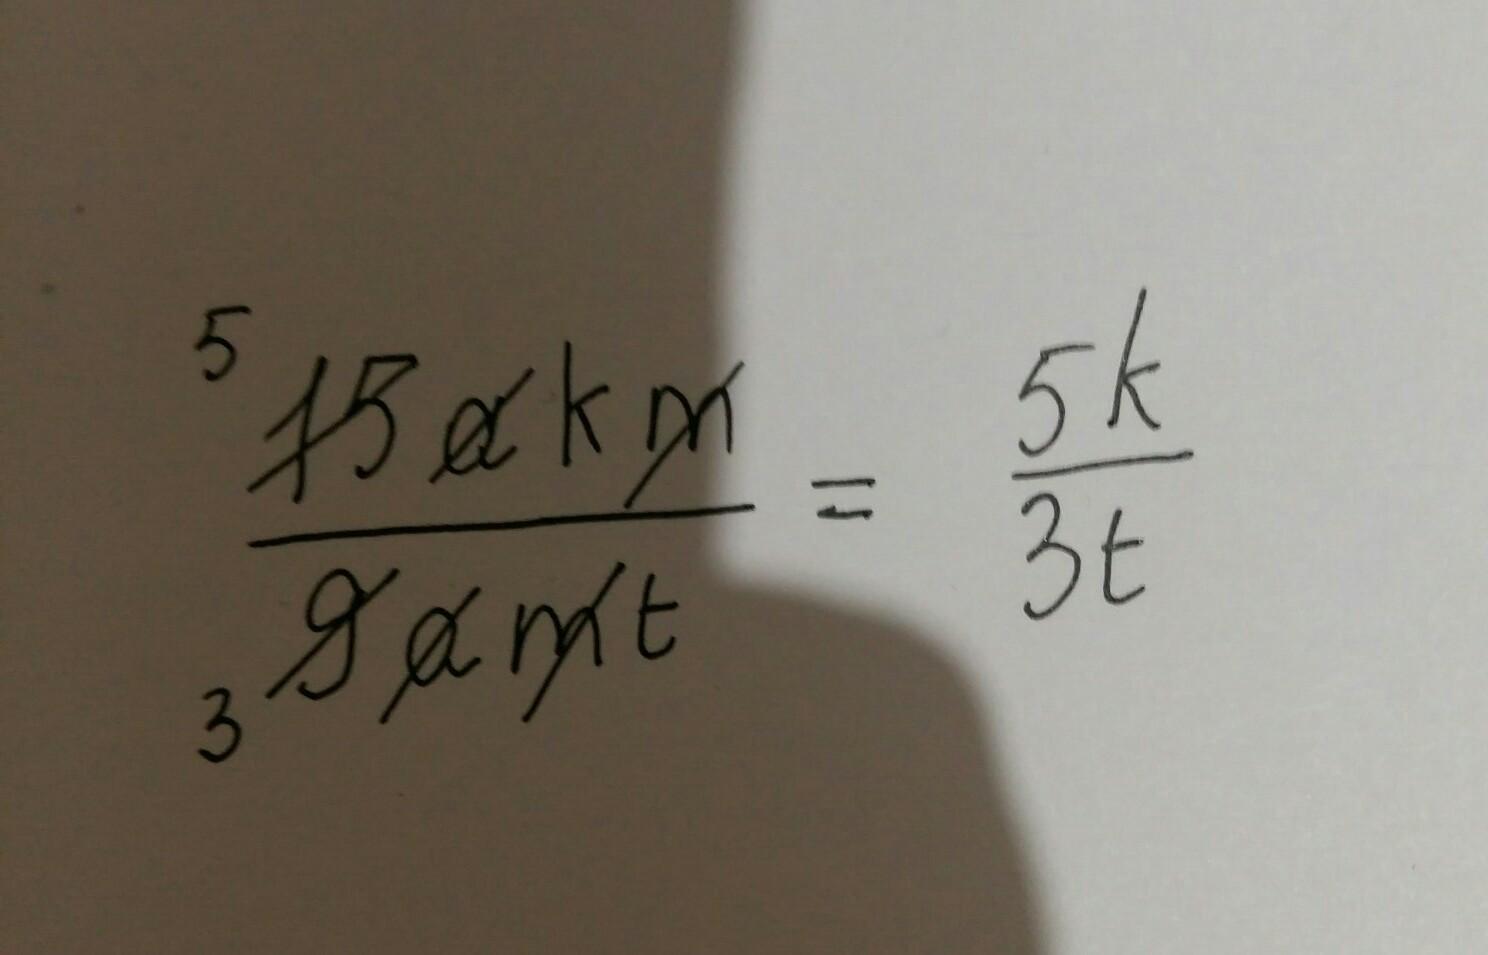 5
15 a k m
9 a m t
3
=
5k
3t